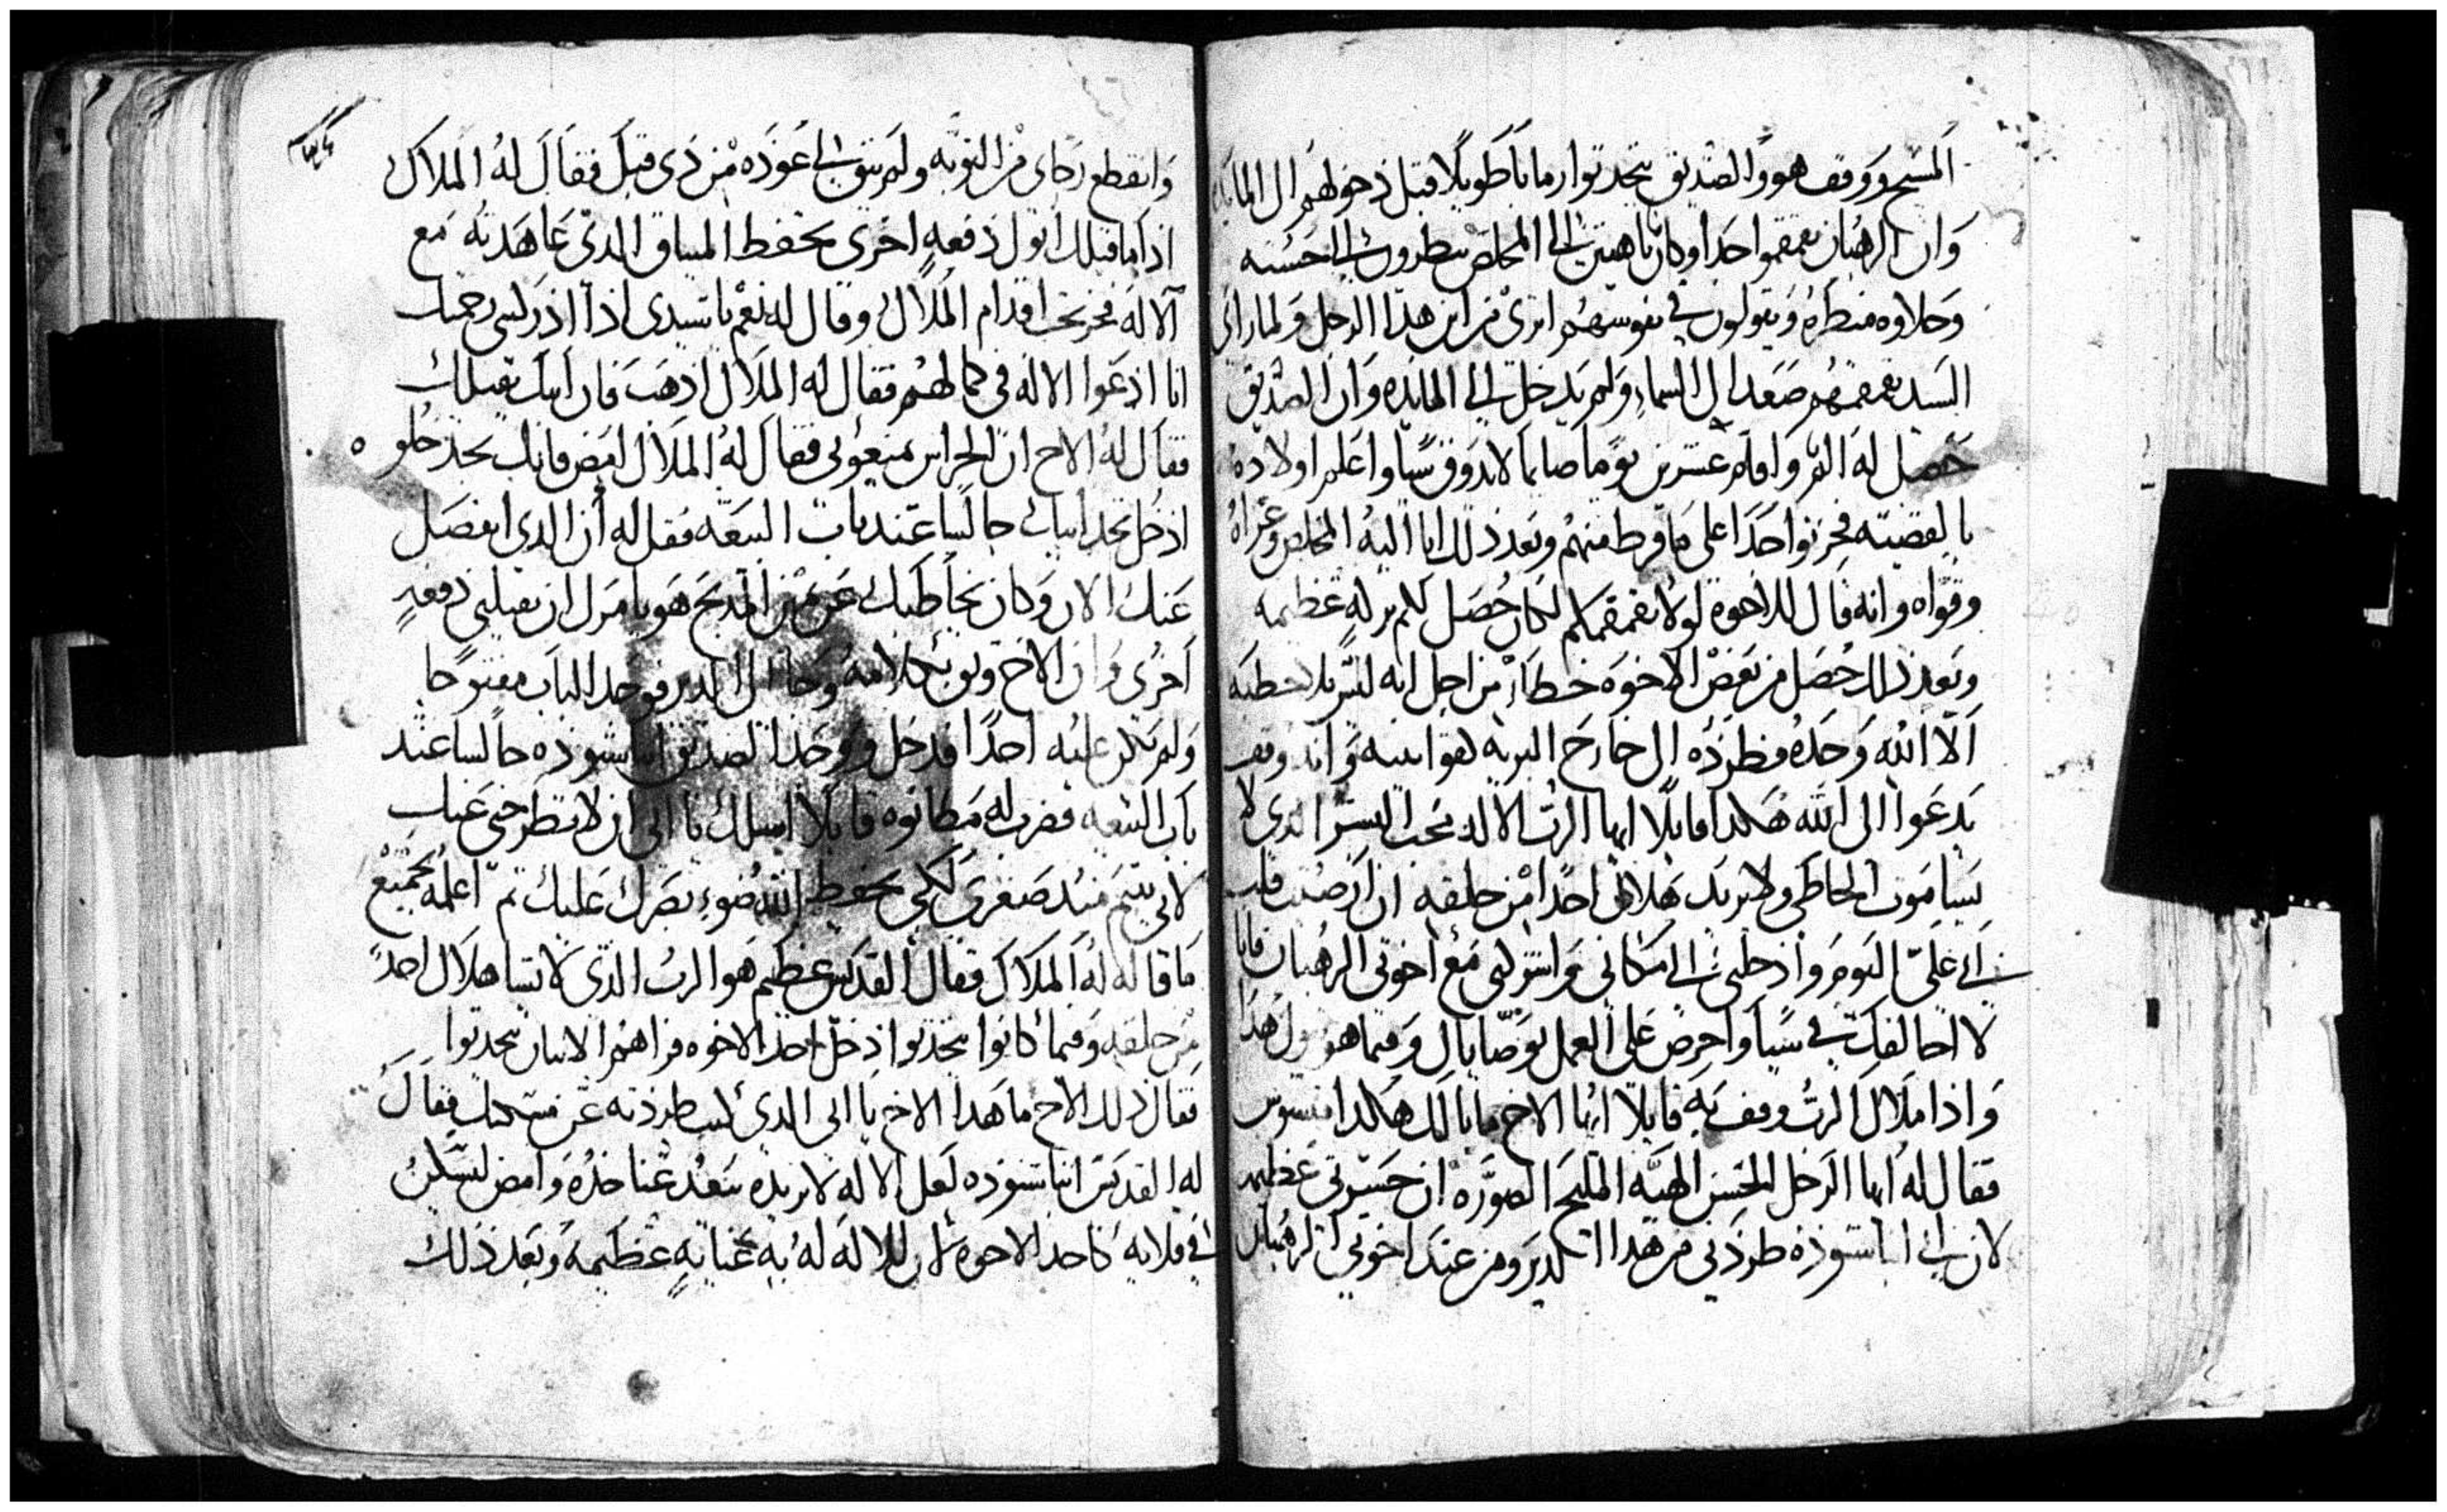 المسيح ووقف هو والصديق يتحدثوا زمانا طويلا قبل دخولهم الى المايده
وان الرهبان تقمقموا جدا وكانوا باهتين الى المخلص ينظرون الى حسنه
وحلاوه منظره ويقولون في نفوسهم اترى من اين هدا الرجل ولما راى
السيد تقمقمهم صعد الى السماء ولم يدخل الى المايده وان الصديق
حصل له الم واقام عشرين يوما صايما لا يدوق شيا واعلم اولاده
بالقضيه فحزنوا جدا على ما فرط منهم وبعد دلك اتا اليه المخلص وعزاه
وقواه وانه قال للاخوه لولا تقمقمكم لكان حصل لكم بركه عظيمه
وبعد دلك حصل من بعض الاخوه خطاء من اجل انه ليس بلا خطيه
الا الله وحده فطرده الى خارج البريه وانه وقف
يدعوا الى الله هكدا قايلا ايها الرب الاله محب البشر الدي لا
يشا موت الخاطي ولا يريد هلاك احدا من خلقه ان ارضيت قلب
ابي علي اليوم وادخلني الى مكاني واتركني مع اخوتي الرهبان فانا
لا اخالفك في شيا واحرص على العمل بوصاياك وفيما هو يقول هدا
وادا ملاك الرب وقف به قايلا ايها الاخ ما بالك هكدا
فقال له ايها الرجل الحسن الهيه المليح الصوره ان حسرتي عظيمه
لان ابي انبا شنوده طردني من هدا الدير ومن عند اخوتي الرهبان
وانقطع رجاي من التوبه ولم يبق لي عوده من دي قبل فقال له الملاك
ادا ما قبلك ابوك دفعه اخرى تحفظ الميثاق الدي عاهدته مع
الاله فخر تحت اقدام الملاك وقال له نعم يا سيدي ادا ادركتني رحمتك
انا ادعوا الاله في كمالهم فقال له الملاك ادهب فان ابيك يقبلك
فقال له الاخ ان الحراس منعوني فقال له الملاك امض فانك تجد خلوه
ادخل تجد ابيك جالسا عند باب البيعه فقل له ان الدي انفصل
عنك الان وكان يخاطبك عن يمين المدبح هو يامرك ان تقبلني دفعه
اخرى وان الاخ وثق بكلامه وجا الى الدير فوجد الباب مفتوحا
ولم يكن عليه احدا فدخل ووجد الصديق انبا شنوده جالسا عند
باب البيعه فضرب له مطانوه قايلا اسلك يا ابي ان لا تطرحني عنك
لاني يتيم مند صغري لكي يحفظ الله ضوء بصرك عليك ثم اعلمه بجميع
ما قاله له الملاك فقال القديس عظيم هو الرب الدي لا يشا هلاك احدا
من خلقه وفيما كانوا يتحدثوا ادخل احد الاخوه فراهم الاثنان يتحدثوا
فقال دلك الاخ ما هدا الاخ يا ابي الدي كنت طردته عن مسكنك فقال
له القديس انبا شنوده لعل الاله لا يريده يبعد عنا خده وامض ليسكن
في قلايه كاحد الاخوه لان للاله له به عنايه عظيمه وبعد دلك